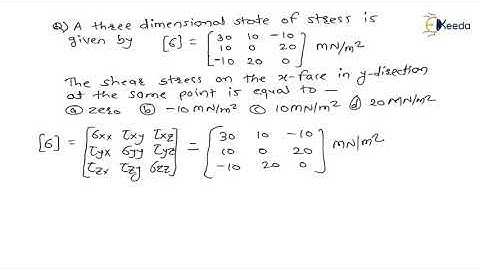 Ekeeda
Q) A three dimensional state of stress is
given by [6] = [30 10 -10
10 0 20
-10 20 0] MN/m²
The shear stress on the x-face in y-direction
at the same point is equal to —
ⓐ zero ⓑ -10 MN/m² ⓒ 10MN/m² ⓓ 20MN/m²
[6] = [6xx τxy τxz
τyx 6yy τyz
τzx τzy 6zz] = [30 10 -10
10 0 20
-10 20 0] MN/m²